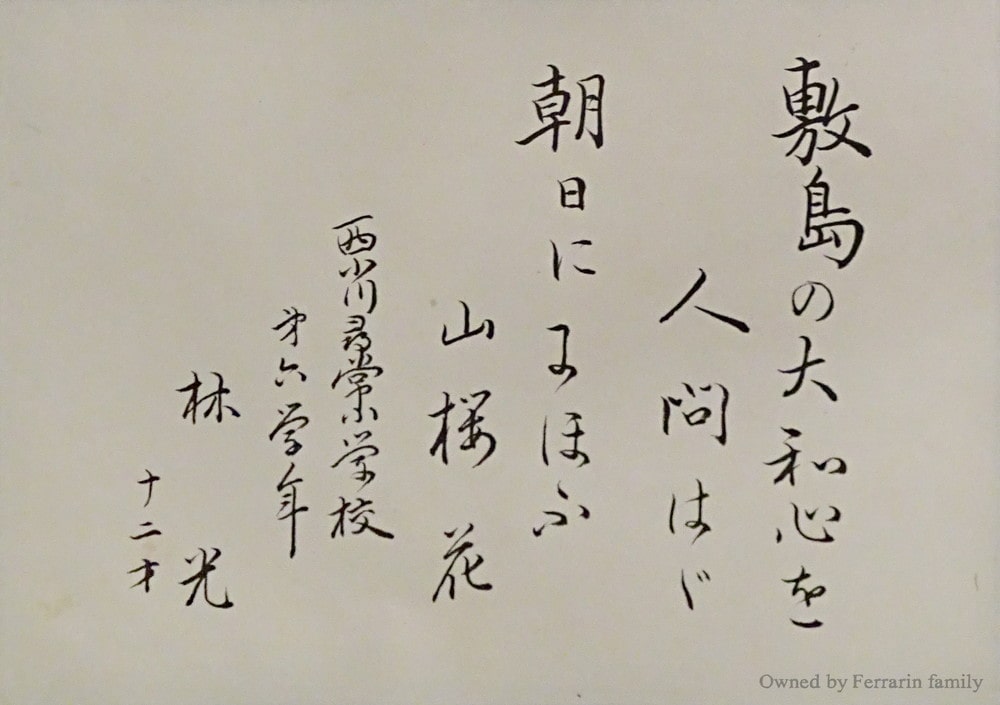 敷島の大和心を
人問はゞ
朝日ににほふ
山桜花
西小川尋常小学校
第六学年
林光
十二才
Owned by Ferrarin family